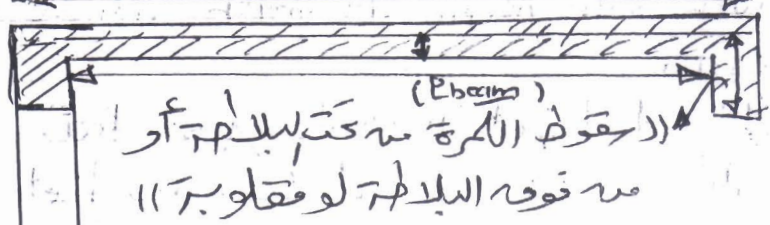 (Lbeam)
((سقوط الكمرة من تحت البلاطة أو
من فوق البلاطة لو مقلوبة))